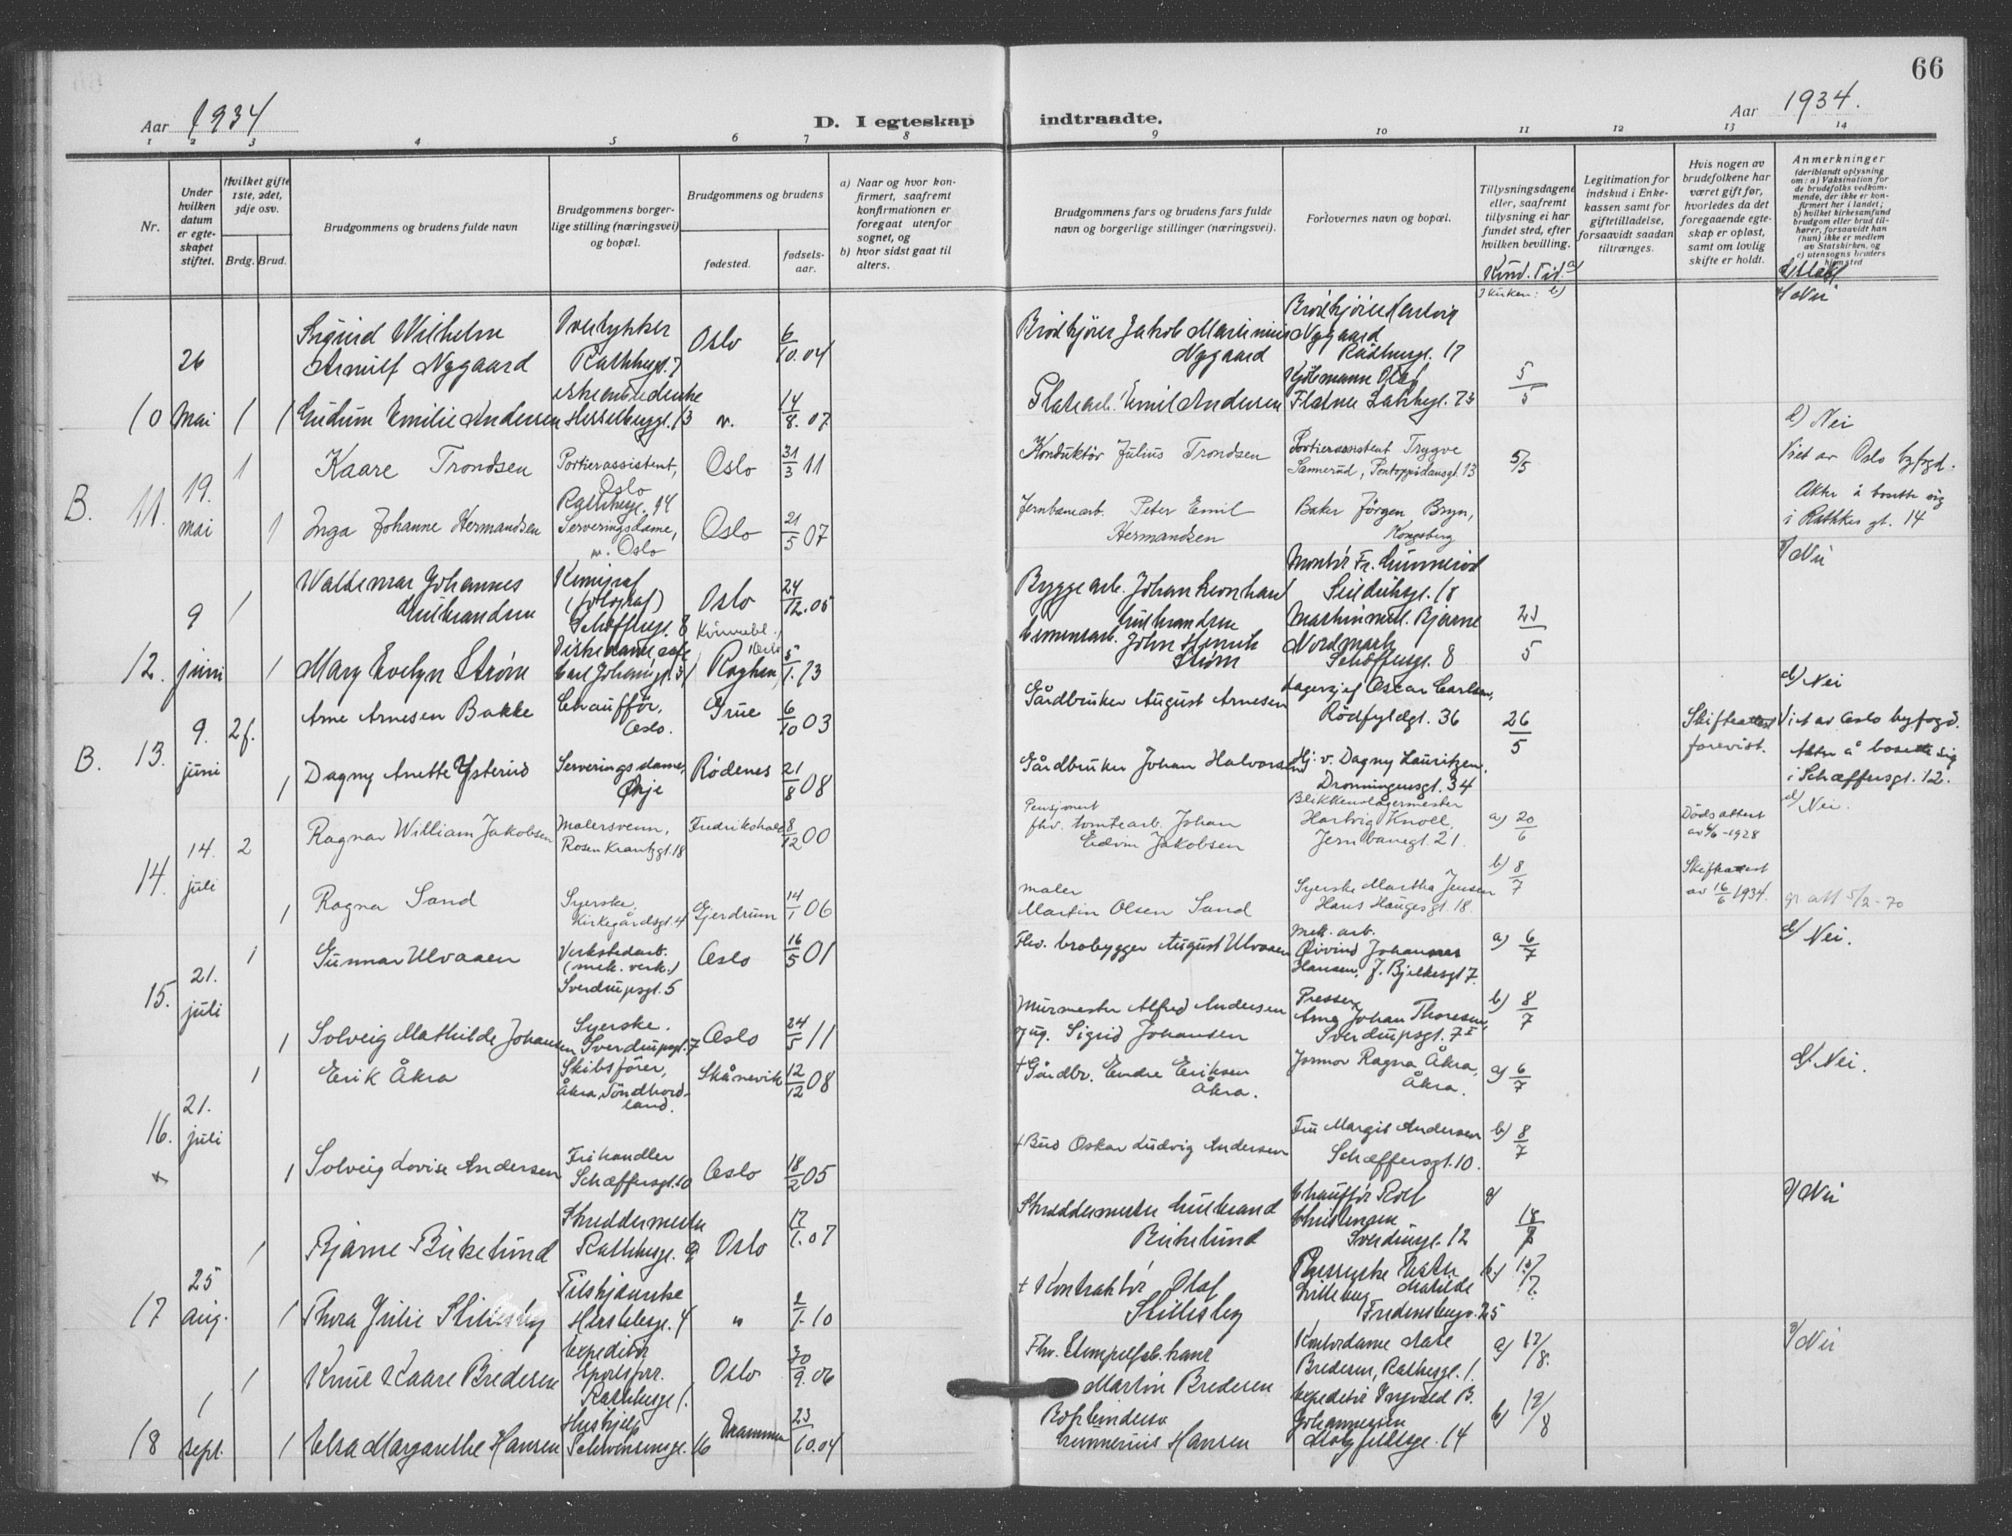 66
Aar 1934
D. I egteskap indtraadte.
Aar 1934.
1 2 3 4 5 6 7 8 9 10 11 12 13 14
Nr.
Under hvilken datum er egteskapet stiftet.
Hvilket gifte 1ste, 2det, 3dje osv.
Brdg. Brud.
Brudgommens og brudens fulde navn
Brudgommens borgerlige stilling (næringsvei) og bopæl.
Brudgommens og brudens
fødested.
fødselsaar.
a) Naar og hvor konfirmert, saafremt konfirmationen er foregaat utenfor sognet, og
b) hvor sidst gaat til alters.
Brudgommens fars og brudens fars fulde navn og borgerlige stillinger (næringsvei).
Forlovernes navn og bopæl.
Tillysningsdagene eller, saafremt tillysning ei har fundet sted, efter hvilken bevilling.
Legitimation for indskud i Enkekassen samt for giftetilladelse, forsaavidt saadan tiltrænges.
Hvis nogen av brudefolkene har været gift før, hvorledes da det foregaaende egteskap er opløst, samt om lovlig skifte er holdt.
Anmerkninger (deriblandt oplysning om: a) Vaksination for de brudefolks vedkommende, der ikke er konfirmert her i landet; b) hvilket kirkesamfund brudgom eller brud tilhører, forsaavidt han (hun) ikke er medlem av Statskirken, og c) utensogns bruders hjemsted
Kund. Tid. a)
I kirken: b)
10 26 mai 1 1
Sigurd Wilhelm Arnulf Nygaard
Rathkesgt. 7
Oslo 6/10.04
Brødkjører Jakob Martinius Nygaard
Brødkjører Hartvig Nygaard
Rådhusgt. 17
5/5
Nei
Gudrun Emilie Andersen
Hersleb­sgt. 13
14/8.07
Platearb. Emil Andersen
B. 11. 19. mai 1 1
Kaare Trondsen
Portierassistent, Oslo
Rathkesgt. 14
Oslo 31/3 11
Konduktør Julius Trondsen
Portierassistent Trygve Sannerud, Pontoppidansgt. 13
5/5
d) Nei
Viet av Oslo byfogd.
Akter å bosette sig
i Rathkes gt. 14
Inga Johanne Hermandsen
Serveringsdame, Oslo
Oslo 21/5 07
Jernbanearb. Peter Emil Hermandsen
Baker Jørgen Bryn, Kongsberg
12. 9 juni 1 1
Waldemar Johannes Gulbrandsen
Kemigraf (fotograf)
Schæffersgt. 8
Oslo 24/12.05
Byggearb. Johan Leonhard Gulbrandsen
Montør Fr. Gunnerød
18
23/5
Nei
Mary Evelyn Strøm
Carl Johansgt.
5/1.13
Cementarb. John Henrik Strøm
Bjarne Nordmark
Schæffersgt. 8
B. 13. 9. juni 2f. 1
Arne Arnesen Bakke
Chauffør, Oslo.
Grue 6/10 03
Gårdbruker August Arnesen
Lagersjef Oscar Carlsen, Rødfyldgt. 36
26/5
Skifteattest forevist.
d) Nei
Viet av Oslo byfogd.
Akter å bosette sig
i Schæffersgt. 12.
Dagny Anette Ysterud
Serveringsdame, Ørje
Rødenes 21/8 08
Gårdbruker Johan Halvorsen
Hj. v. Dagny Lauritzen, Dronningensgt. 34
14. 14. juli 2 1
Ragnar William Jakobsen
Malersvenn, Rosenkrantzgt. 18
Fredrikshald 8/12 00
Pensjonert fhv. tomtearb. Johan Edvin Jakobsen
Blikkenslagermester Hartvig Knoll, Jernbanegt. 21.
a) 20/6
Dødsattest
d) Nei.
Ragna Sand
Syerske, Kirkegårdsgt. 4
Gjerdrum 14/1 06
Maler Martin Olsen Sand
Syerske Martha Jensen
Hans Haugesgt. 18.
b) 8/7
Skifteattest av 16/6 1934.
gr. att 5/2-70
15. 21. juli 1 1
Gunnar Ulvaaen
Verkstedarb. (mek. verk.)
Sverdrupsgt. 5
Oslo 16/5 01
Fhv. brobygger August Ulvaaen
Mek. arb. Øivind Johannes Hansen, J. Bjelkesgt 7.
a) 6/7
d) Nei.
Solveig Mathilde Johansen
Syerske. Sverdrupsgt. 7
Oslo 24/5 11
Murmester Alfred Andersen
og ug. Sigrid Johansen
Presser Arne Johan Thoresen, Sverdrupsgt. 7 I
b) 8/7
16. 21. juli 1 1
Erik Åkra
Skibsfører, Åkra, Søndhordland.
Skånevik 12/12 08
+ Gårdbr. Endre Eriksen Åkra.
Jormor Ragna Åkra, Åkra.
a) 6/7
d) Nei.
Solveig Lovise Andersen
Frihandler Schæffersgt. 10
Oslo 18/2 05
+ Bud Oskar Ludvig Andersen
Fru Margit Andersen Schæffersgt. 10.
b) 8/7
17 25 aug. 1 1
Bjarne Birkelund
Skreddermester Rathkesgt. 9
Oslo 17/1.07
Skreddermester Gulbrand Birkelund
Chauffør Rolf Christensen
Sverdrupgt. 12
a)
Nei
Thora Julie Skillesby
Herslebsgt. 4
" 2/1.10
+ Kontraktør Olaf Skillesby
Matilde
Fredensborgv. 25
b) 15/7.
18 1 sept. 1 1
Knut Kaare Bredesen
Expeditør Sportsforr.
Rathkesgt 1.
Oslo 30/9.06
Martin Bredesen
Kontordame Aase Bredesen, Rathkesgt. 1.
a) 12/8.
Nei
Elsa Margarethe Hansen
Hushjelp Schwensensgt. 16
Drammen 23/10.04
Bokbinder
Gunnerius Hansen
Expeditør Ingvald B. Johannessen
14
b) 19/8